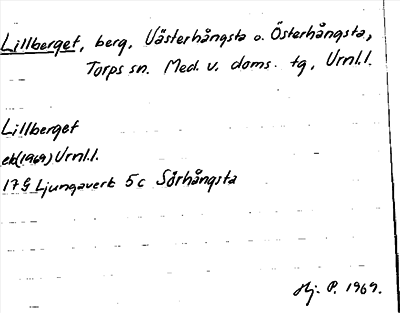 Lillberget, berg, Västerhångsta o. Österhångsta,
Torps sn. Med. v. doms. tg, Urnl.l.
Lillberget
ek(1969) Urnl.l.
17G Ljungaverk 5c Sörhångsta
Hj. P. 1969.